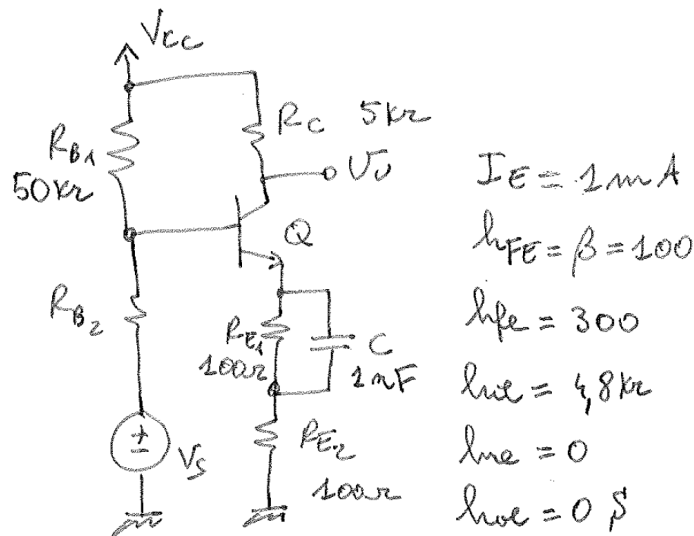 VCC
RB1
50kΩ
RC 5kΩ
Vu
Q
RB2
RE1
100Ω
C
1nF
VS
±
RE2
100Ω
IE = 1mA
hFE = β = 100
hfe = 300
hie = 4,8kΩ
hre = 0
hoe = 0 S